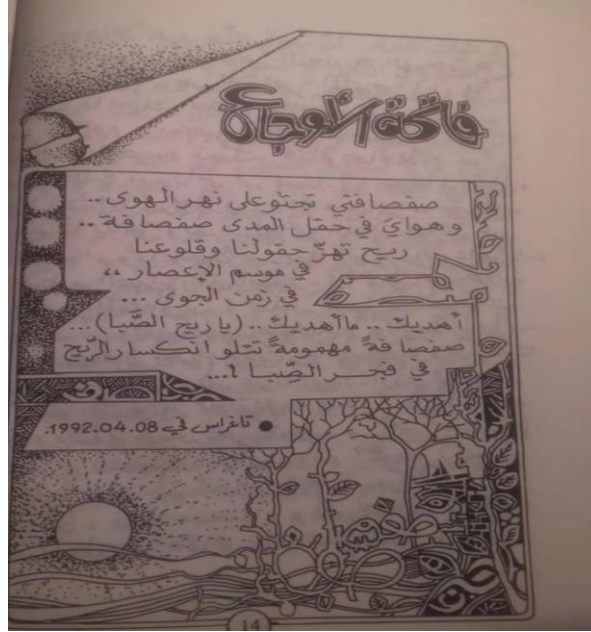 فاتحة الأوجاع
صفصافتي تجثو على نهر الهوى ..
و هوايَ في حقل المدى صفصافة ..
ريح تهزّ حقولنا وقلوعنا
في موسم الإعصار ،،
في زمن الجوى ...
أهديك .. ما أهديك .. (يا ريح الصَّبا) ...
صفصافةً مهمومةً تتلو انكسار الرّيح
في فجر الصِّبا !...
● تاغراس في 1992.04.08.
14